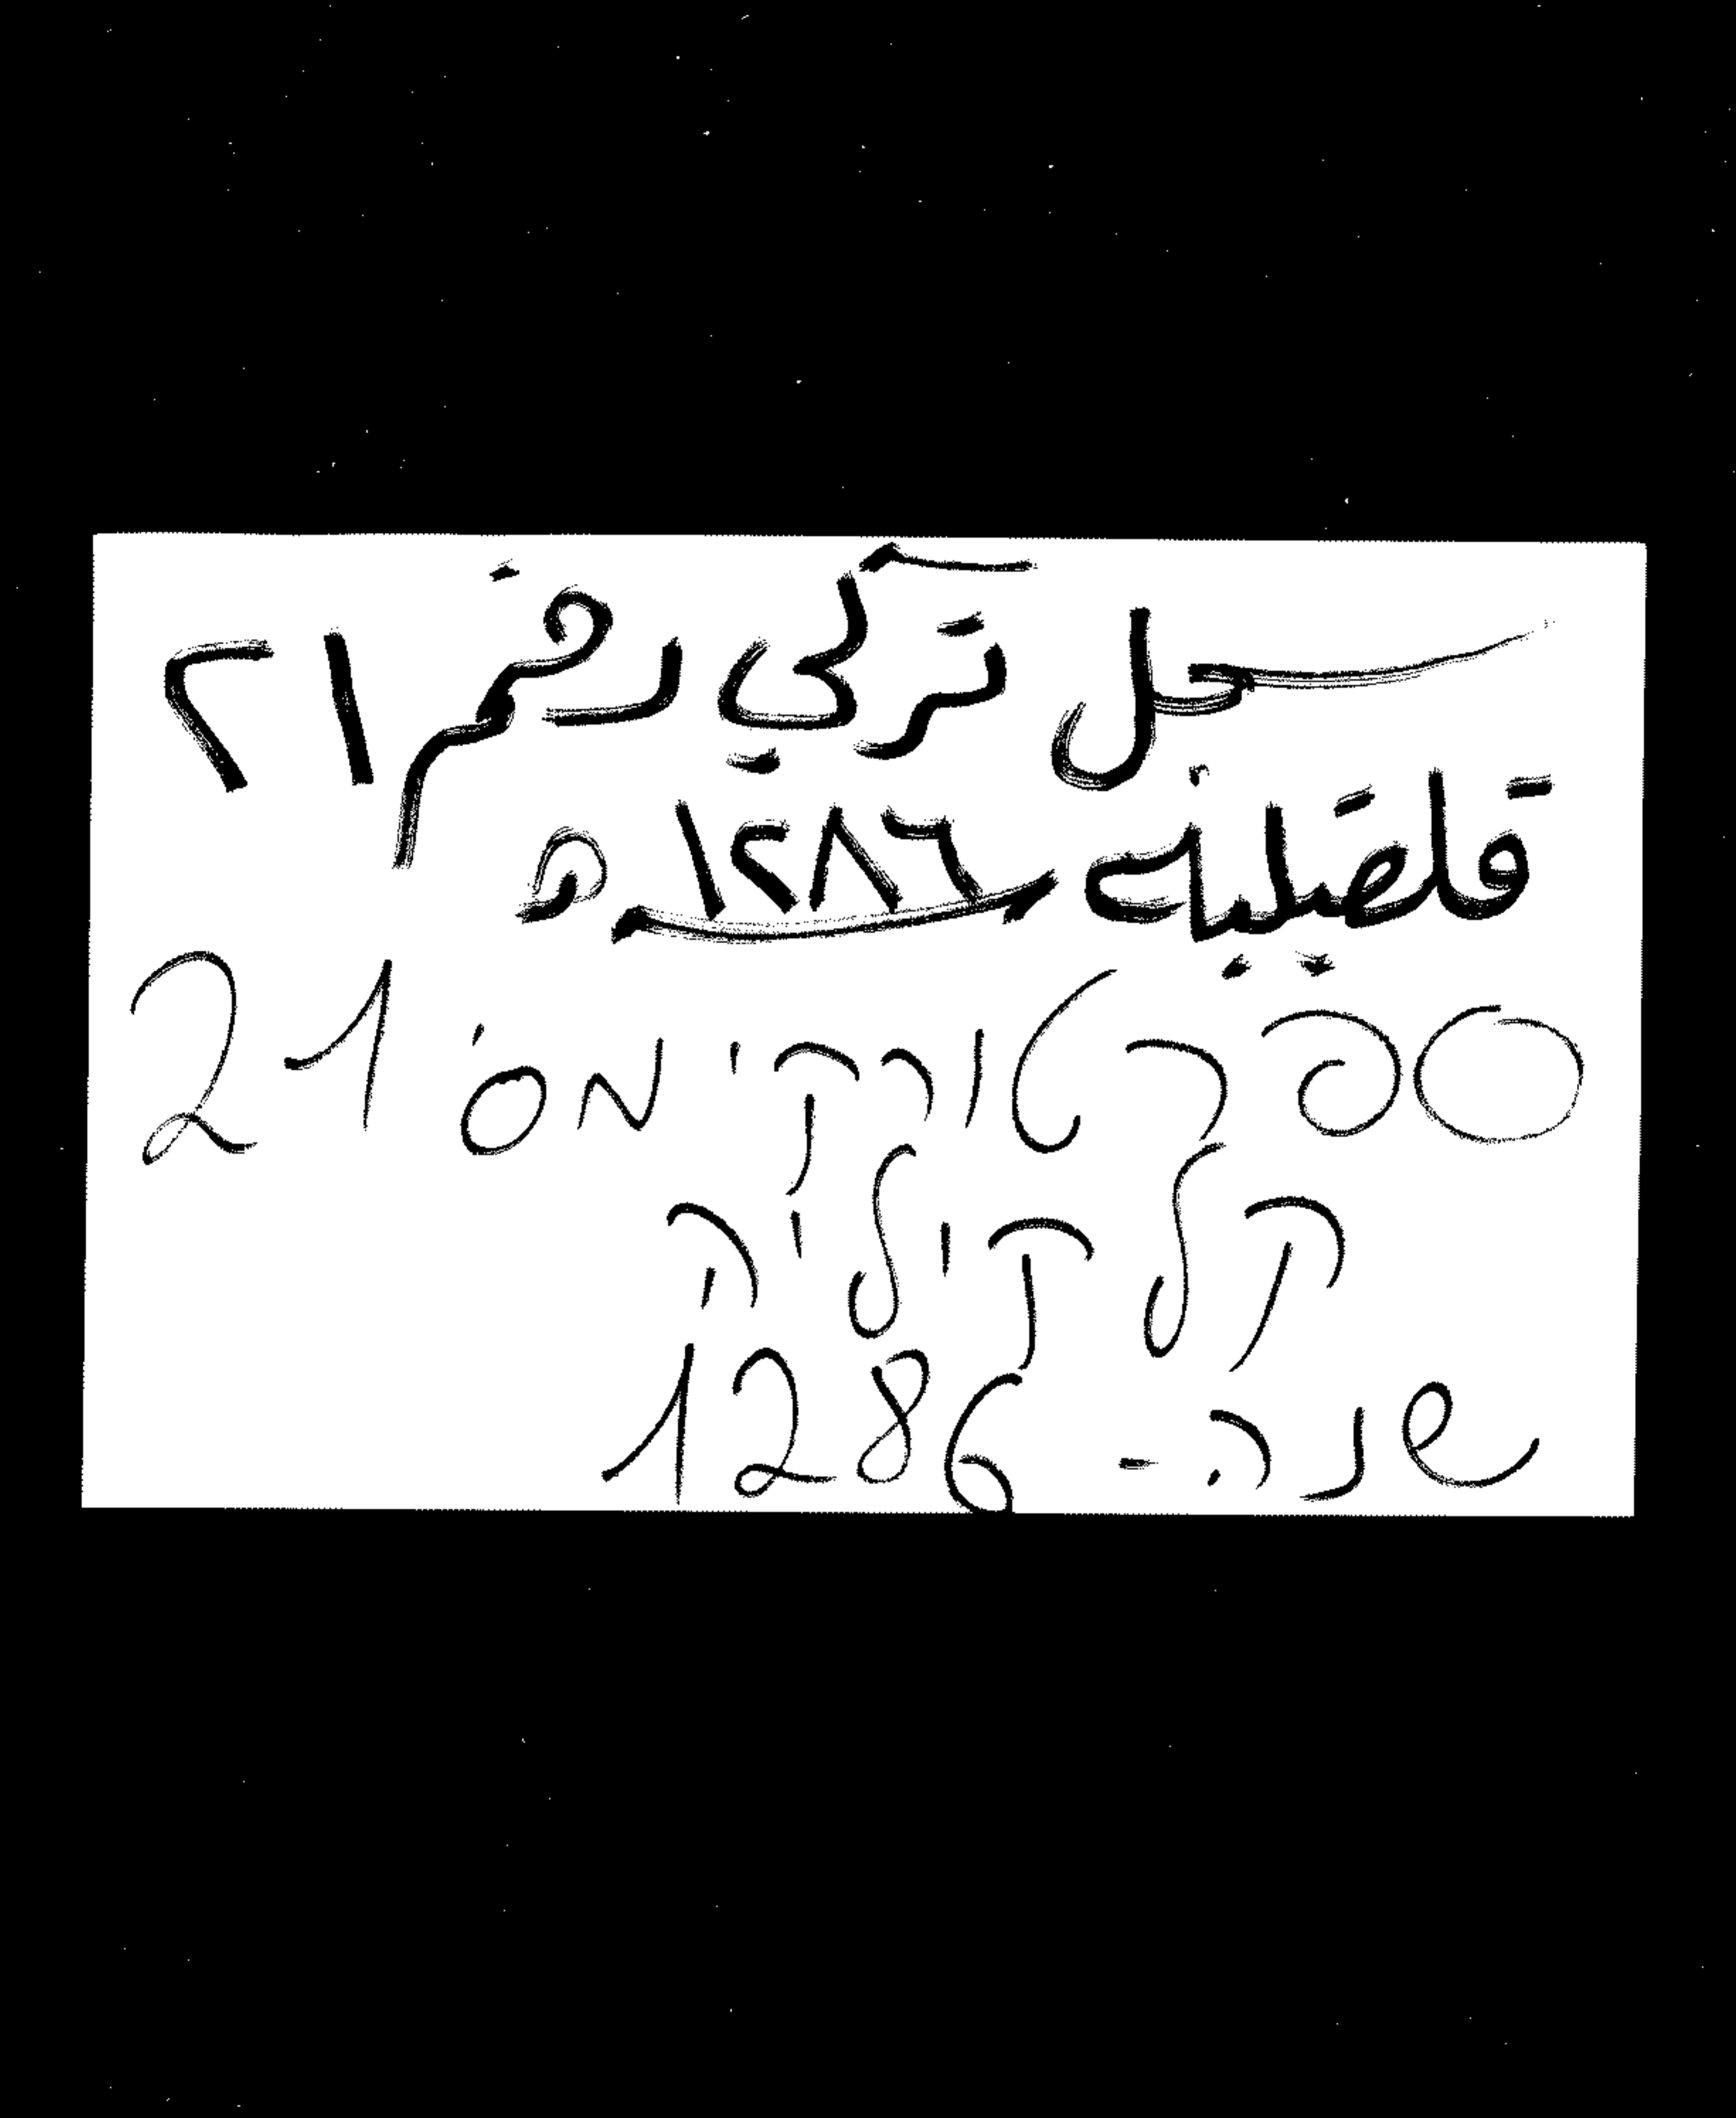 سجل تركي رقم ٢١
قلقيلية ١٢٨٦ ه
ספר טורקי מס' 21
קלקיליה
שנה - 1286